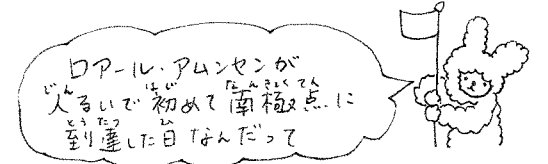 ロアール・アムンセンが
人るいで初めて南極点に
到達した日なんだって